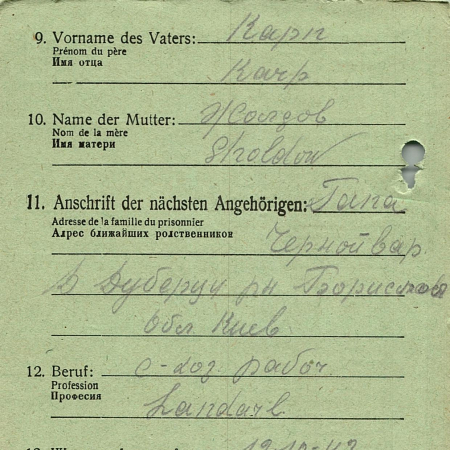 9. Vorname des Vaters: Карп
Prénom du père
Имя отца
Karp
10. Name der Mutter: Жолдов
Nom de la mère
Имя матери
Sholdow
11. Anschrift der nächsten Angehörigen: Гапа
Adresse de la famille du prisonnier
Адрес ближайших родственников
Чернойвар
Д Дуберуч рн Бориспов
Обл Киев
12. Beruf: с-хоз. рабоч.
Profession
Професия
Landarb